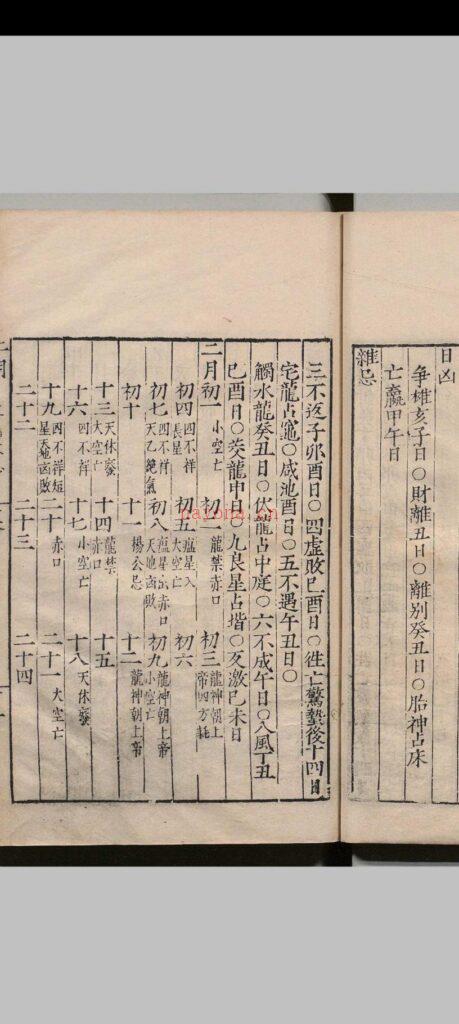 日凶
争雄亥子日○財離丑日○離別癸丑日○胎神占床
亡贏甲午日
雜忌
三不返子卯酉日○四虛敗己酉日○徃亡驚蟄後十四日
宅龍占竈○咸池酉日○五不遇午丑日○
觸水龍癸丑日○伏龍占中庭○六不成午日○八風丁丑
己酉日○
龍申日○九艮星占堦○
激巳未日
二月初一 小空亡
初二 龍禁赤口
初三 龍神朝上帝四方耗
初四 四不祥長星
初五 瘟星入大空亡
初六
初七 四不祥天乙絕氣
初八 瘟星出赤口天地凶敗
初九 龍神朝上帝小空亡
初十
十一 楊公忌
十二 龍神朝上帝
十三 天休廢大空亡
十四 龍禁赤口
十五
十六 四不祥
十七 小空亡
十八 天休廢
十九 四不祥短星天地凶敗
二十 赤口
二十一 大空亡
二十二
二十三
二十四
二月
nayona.cn